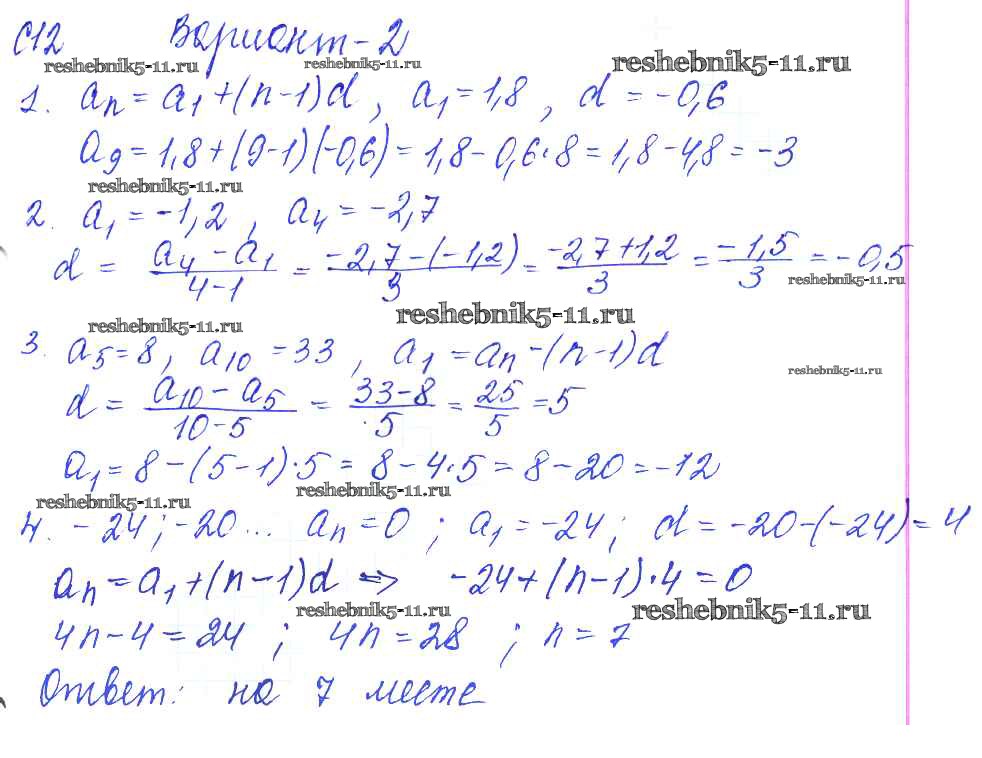 С12 Вариант-2
reshebnik5-11.ru reshebnik5-11.ru reshebnik5-11.ru
1. aₙ = a₁ + (n-1)d, a₁ = 1,8, d = -0,6
a₉ = 1,8 + (9-1)(-0,6) = 1,8 - 0,6·8 = 1,8 - 4,8 = -3
reshebnik5-11.ru
2. a₁ = -1,2, a₄ = -2,7
d = (a₄ - a₁)/(4-1) = (-2,7-(-1,2))/3 = (-2,7+1,2)/3 = (-1,5)/3 = -0,5
reshebnik5-11.ru
reshebnik5-11.ru reshebnik5-11.ru
3. a₅ = 8, a₁₀ = 33, a₁ = aₙ - (n-1)d
reshebnik5-11.ru
d = (a₁₀ - a₅)/(10-5) = (33-8)/5 = 25/5 = 5
a₁ = 8 - (5-1)·5 = 8 - 4·5 = 8 - 20 = -12
reshebnik5-11.ru reshebnik5-11.ru
4. -24; -20... aₙ = 0; a₁ = -24; d = -20-(-24) = 4
aₙ = a₁ + (n-1)d => -24 + (n-1)·4 = 0
reshebnik5-11.ru reshebnik5-11.ru
4n - 4 = 24; 4n = 28; n = 7
Ответ: на 7 месте